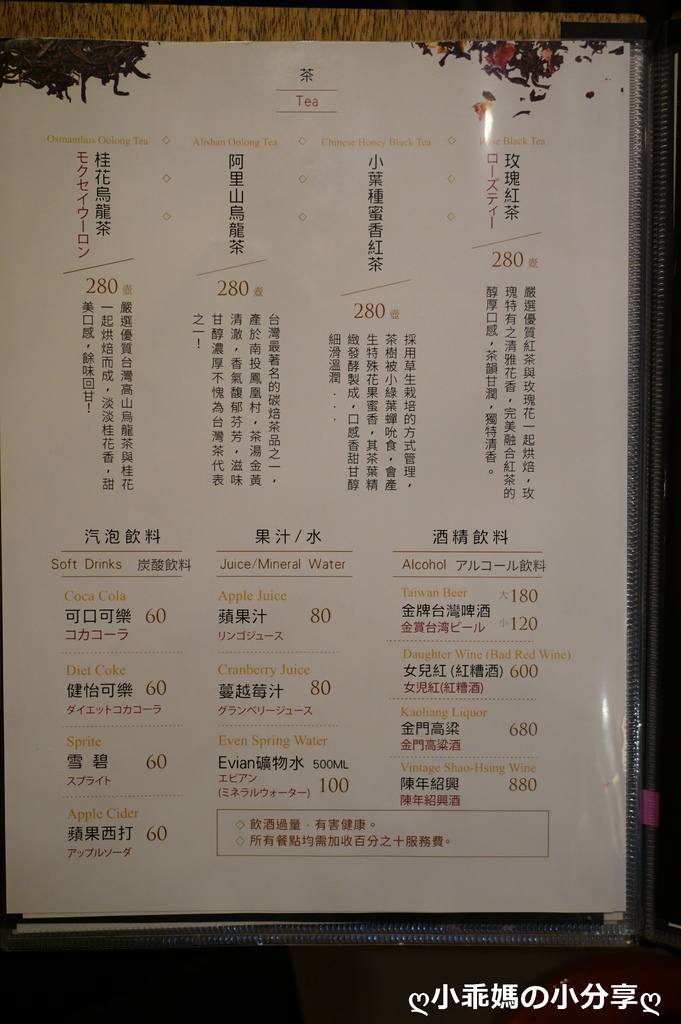 茶
Tea
Osmanthus Oolong Tea
桂花烏龍茶
モクセイウーロン
280 壺
嚴選優質台灣高山烏龍茶與桂花
一起烘焙而成，淡淡桂花香，甜
美口感，餘味回甘！
Alishan Oolong Tea
阿里山烏龍茶
280 壺
台灣最著名的碳焙茶品之一，
產於南投鳳凰村，茶湯金黃
清澈，香氣馥郁芬芳，滋味
甘醇濃厚不愧為台灣茶代表
之一！
Chinese Honey Black Tea
小葉種蜜香紅茶
280 壺
採用草生栽培的方式管理，
茶樹被小綠葉蟬吮食，會產
生特殊花果蜜香，其茶葉精
緻發酵製成，口感香甜甘醇
細滑溫潤...
Black Tea
玫瑰紅茶
ローズティー
280 壺
嚴選優質紅茶與玫瑰花一起烘焙，玫
瑰特有之清雅花香，完美融合紅茶的
醇厚口感，茶韻甘潤，獨特清香。
汽泡飲料
Soft Drinks 炭酸飲料
Coca Cola
可口可樂 60
コカコーラ
Diet Coke
健怡可樂 60
ダイエットコカコーラ
Sprite
雪碧 60
スプライト
Apple Cider
蘋果西打 60
アップルソーダ
果汁/水
Juice/Mineral Water
Apple Juice
蘋果汁 80
リンゴジュース
Cranberry Juice
蔓越莓汁 80
グランベリージュース
Even Spring Water
Evian礦物水 500ML
エビアン
(ミネラルウォーター) 100
酒精飲料
Alcohol アルコール飲料
Taiwan Beer 大180
金牌台灣啤酒
金賞台湾ビール 小120
Daughter Wine (Bad Red Wine)
女兒紅(紅糟酒) 600
女児紅(紅糟酒)
Kaoliang Liquor
金門高粱 680
金門高粱酒
Vintage Shao-Hsing Wine
陳年紹興 880
陳年紹興酒
◇ 飲酒過量．有害健康。
◇ 所有餐點均需加收百分之十服務費。
ღ小乖媽の小分享ღ